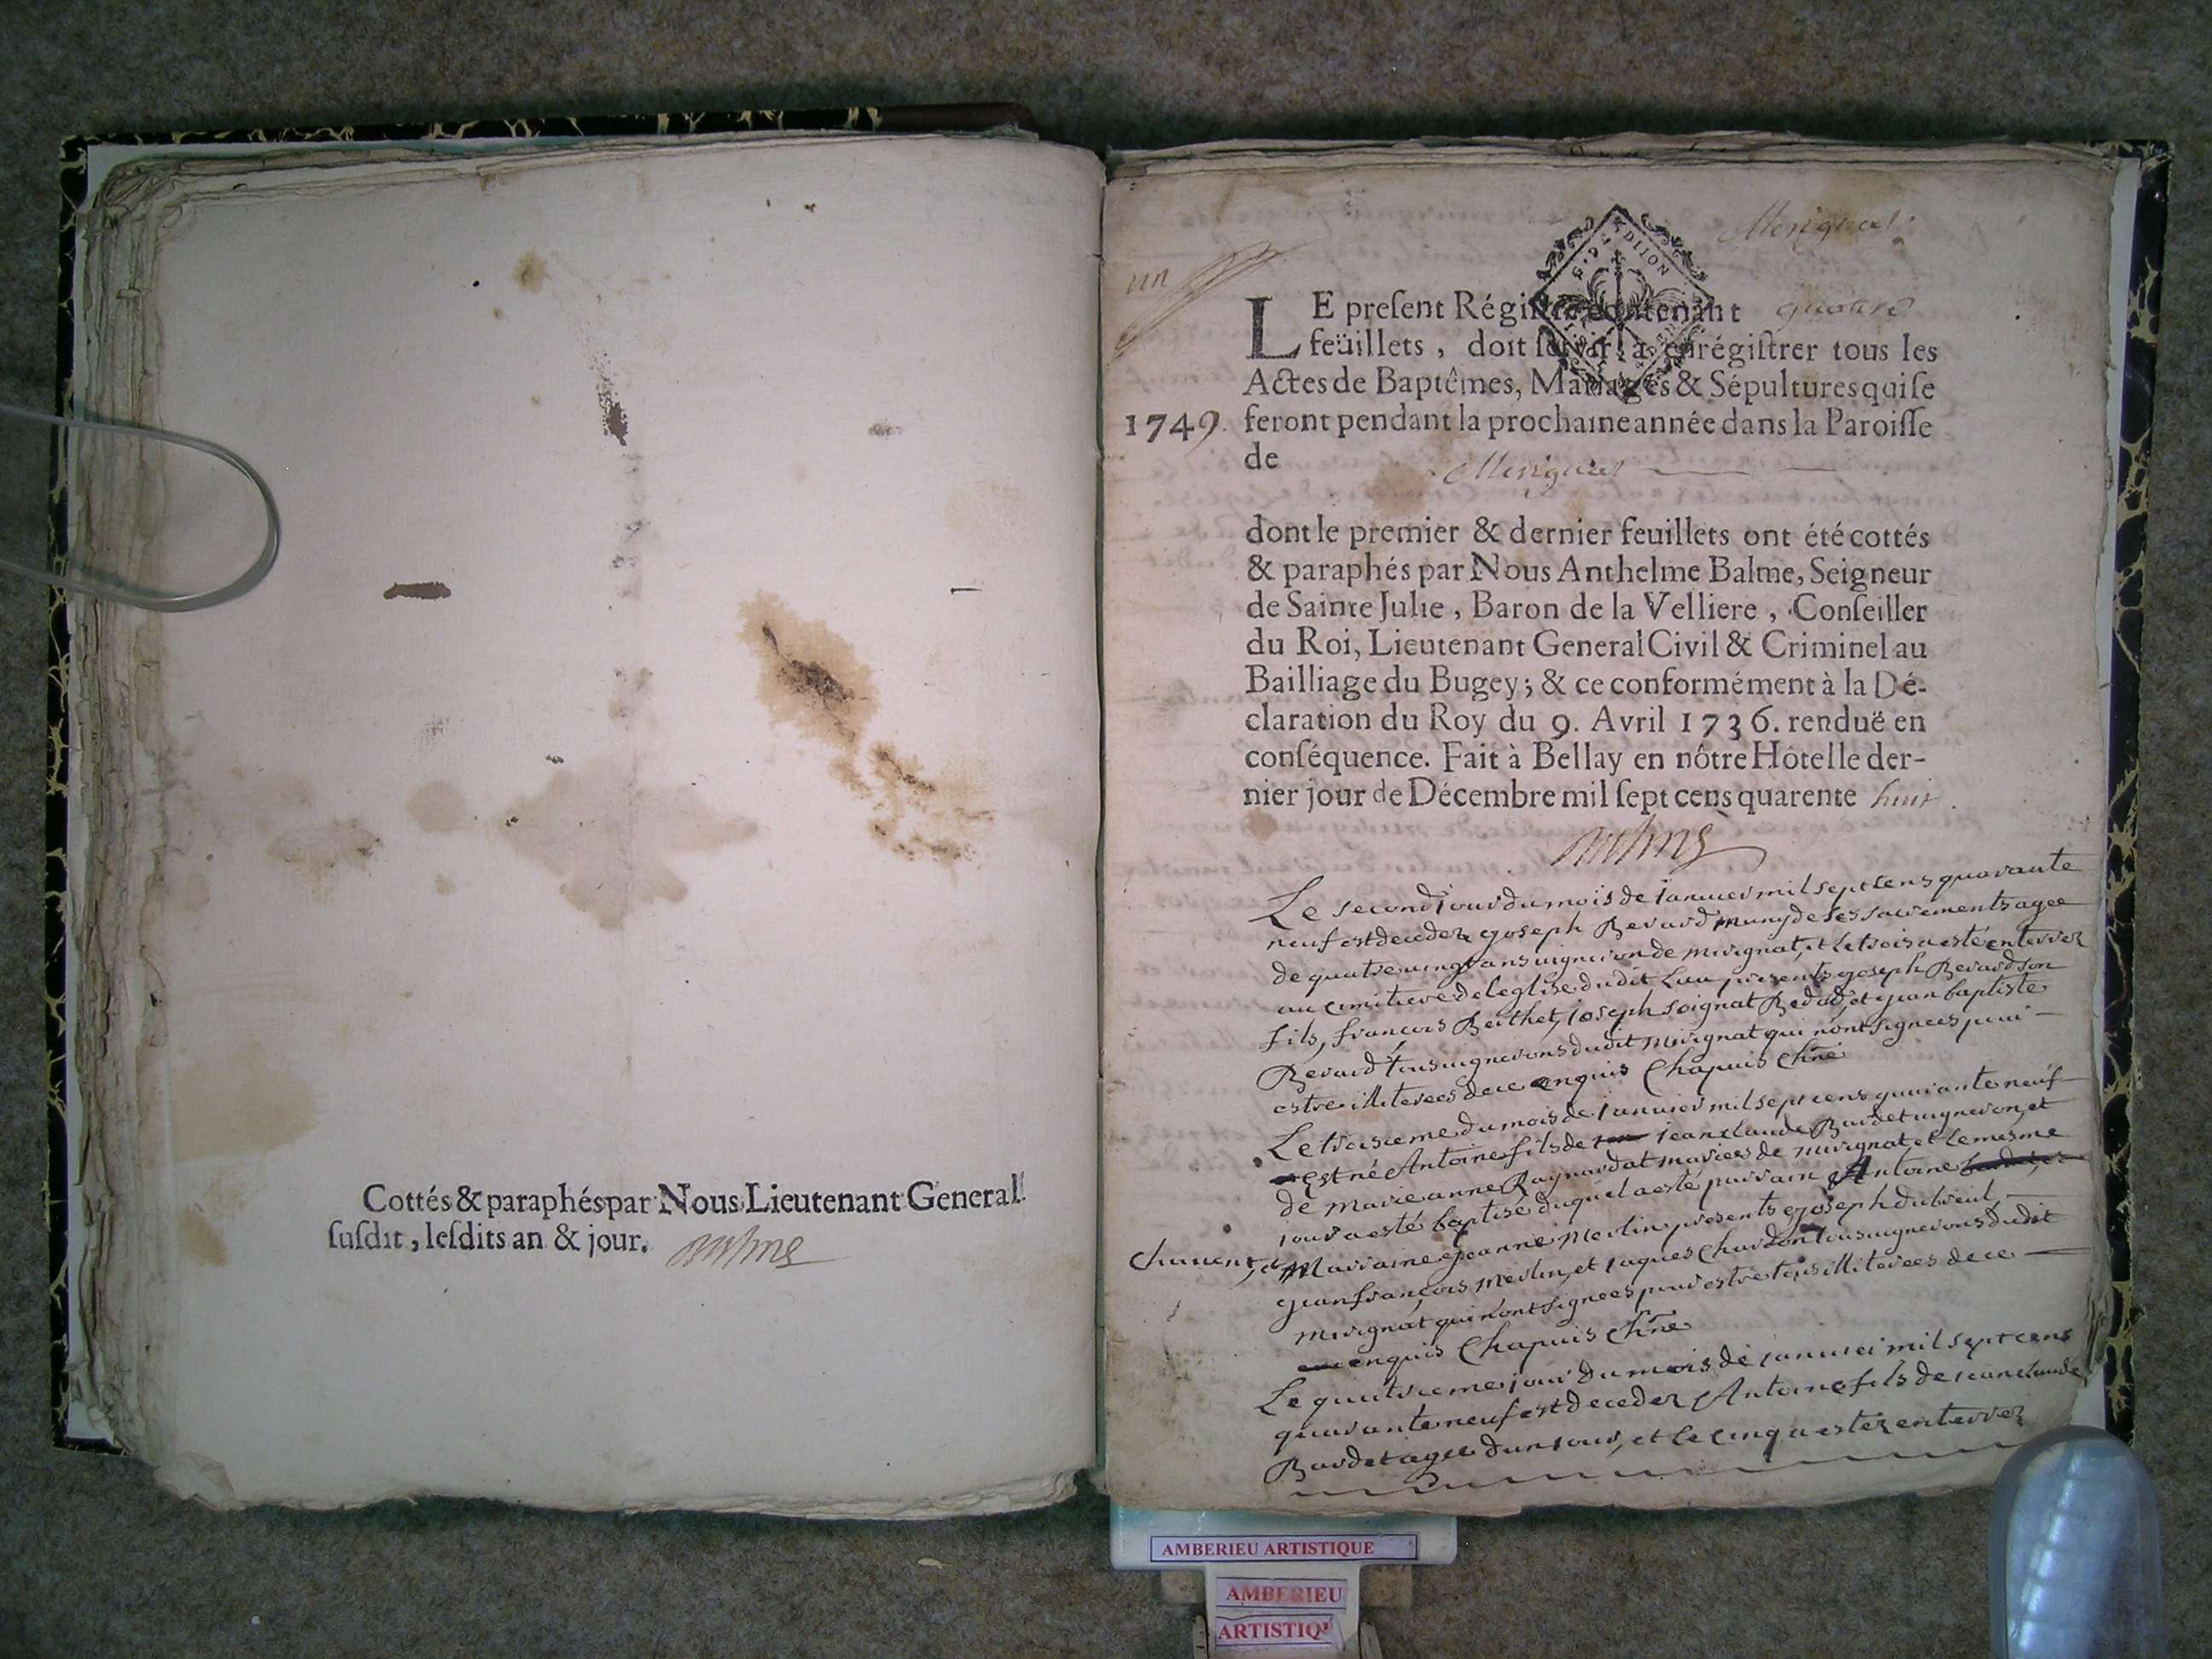 Cottés & paraphés par Nous Lieutenant General
ſuſdit, leſdits an & jour.
un
DIJON
LE preſent Régiſtre contenant quatre
feüillets, doit ſervir à enrégiſtrer tous les
Actes de Baptêmes, Mariages & Sépultures qui ſe
1749. feront pendant la prochaine année dans la Paroiſſe
de
dont le premier & dernier feuillets ont été cottés
& paraphés par Nous Anthelme Balme, Seigneur
de Sainte Julie, Baron de la Velliere, Conſeiller
du Roi, Lieutenant General Civil & Criminel au
Bailliage du Bugey; & ce conformément à la Dé-
claration du Roy du 9. Avril 1736. renduë en
conſéquence. Fait à Bellay en nôtre Hôtel le der-
nier jour de Décembre mil ſept cens quarente huit.
Le second jour du mois de januier mil sept cens quarante
neuf est decedez joseph Berard muny de ses sacrements agee
de quatre uingt ans uigneron de mirignat, et le trois a esté enterrez
au cimitiere de leglise dudit lieu presents joseph Berard son
fils, francois Berthet, joseph soignat et jean baptiste
Berard tous uignerons dudit mirignat qui nont signees pour
estre illiterees de ce enquis Chapuis
Le troisieme du mois de januier mil sept cens quarante neuf
est né Antoine fils de jean claude Bardet uigneron, et
de marie anne Raynardat mariees de mirignat et le mesme
jour a esté baptisé duquel a esté parrain Antoine
Marraine jeanne merlin presents joseph dubreul
jean francois merlin, et jaques Chardon tous uignerons dudit
mirignat qui nont signees pour estre tous illiterees de ce
enquis Chapuis
Le quatrieme jour du mois de januier mil sept cens
quarante neuf est decedez Antoine fils de jean claude
Bardet agee dun jour, et le cinq a estez enterrez
AMBERIEU ARTISTIQUE
AMBERIEU
ARTISTIQ